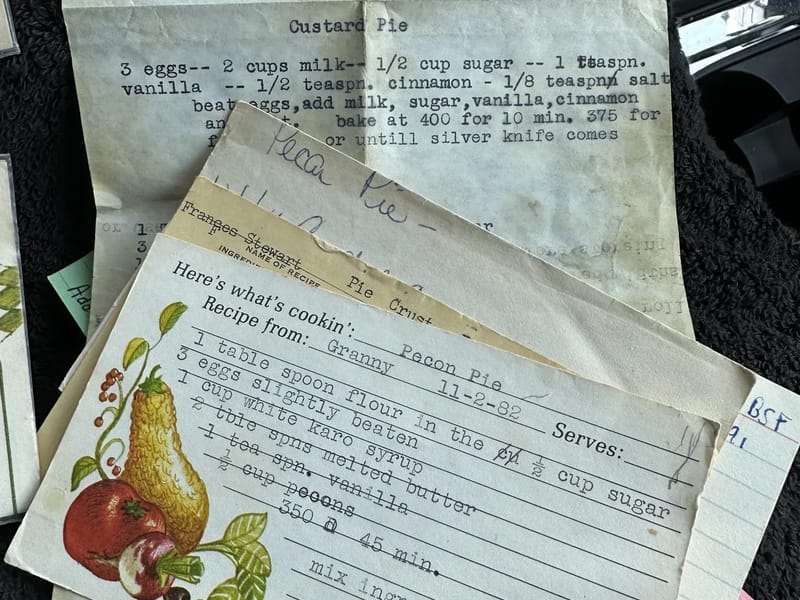 Custard Pie
3 eggs-- 2 cups milk-- 1/2 cup sugar -- 1 teaspn.
vanilla -- 1/2 teaspn. cinnamon - 1/8 teaspn salt
beat eggs,add milk, sugar,vanilla,cinnamon
bake at 400 for 10 min. 375 for
or untill silver knife comes
Pecan Pie -
Frances Stewart
NAME OF RECIPE
Pie Crust
Here's what's cookin': Pecon Pie
Recipe from: Granny 11-2-82 Serves:
1 table spoon flour in the ½ cup sugar
3 eggs slightly beaten
1 cup white karo syrup
2 tble spns melted butter
1 tea spn. vanilla
½ cup pecons
350 @ 45 min.
mix
BSF